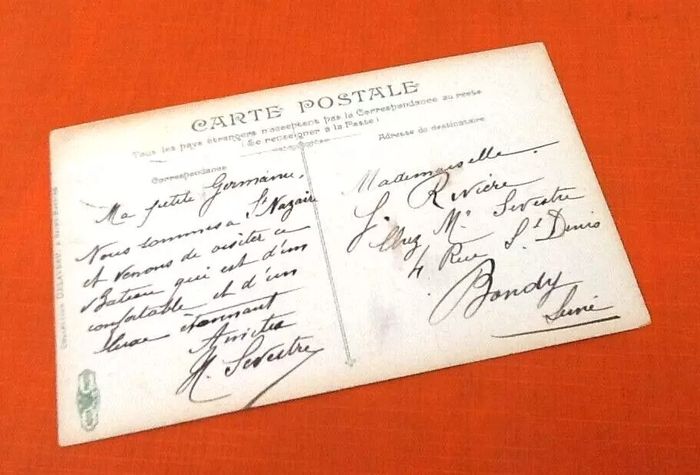 CARTE POSTALE
Tous les pays étrangers n'acceptent pas la Correspondance au recto
(Se renseigner à la Poste)
Correspondance
Adresse du destinataire
Ma petite Germaine,
Nous sommes a St Nazaire
et venons de visiter ce
Bateau qui est d'un
confortable et d'un
luxe étonnant
Amitiés
H. Sevestre
Mademoiselle
G. Rivière
Chez Mr Sevestre
4 Rue St Denis
Bondy
Seine
Collection DELAVEAU, à Saint-Nazaire